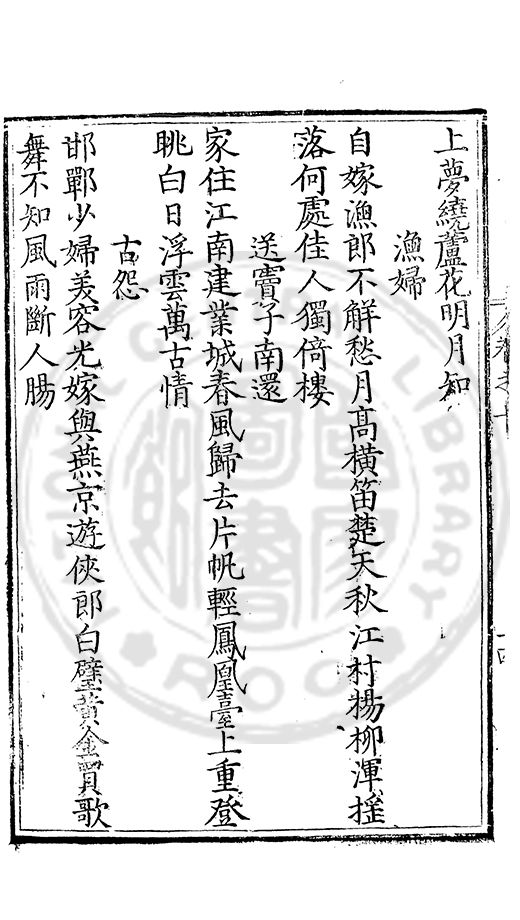 上夢繞蘆花明月知
漁婦
自嫁漁郎不解愁月高橫笛楚天秋江村楊柳渾揺
落何處佳人獨倚樓
送竇子南還
家住江南建業城春風歸去片帆輕鳳凰臺上重登
眺白日浮雲萬古情
古怨
邯鄲少婦美容光嫁與燕京遊俠郎白璧黃金買歌
舞不知風雨斷人腸